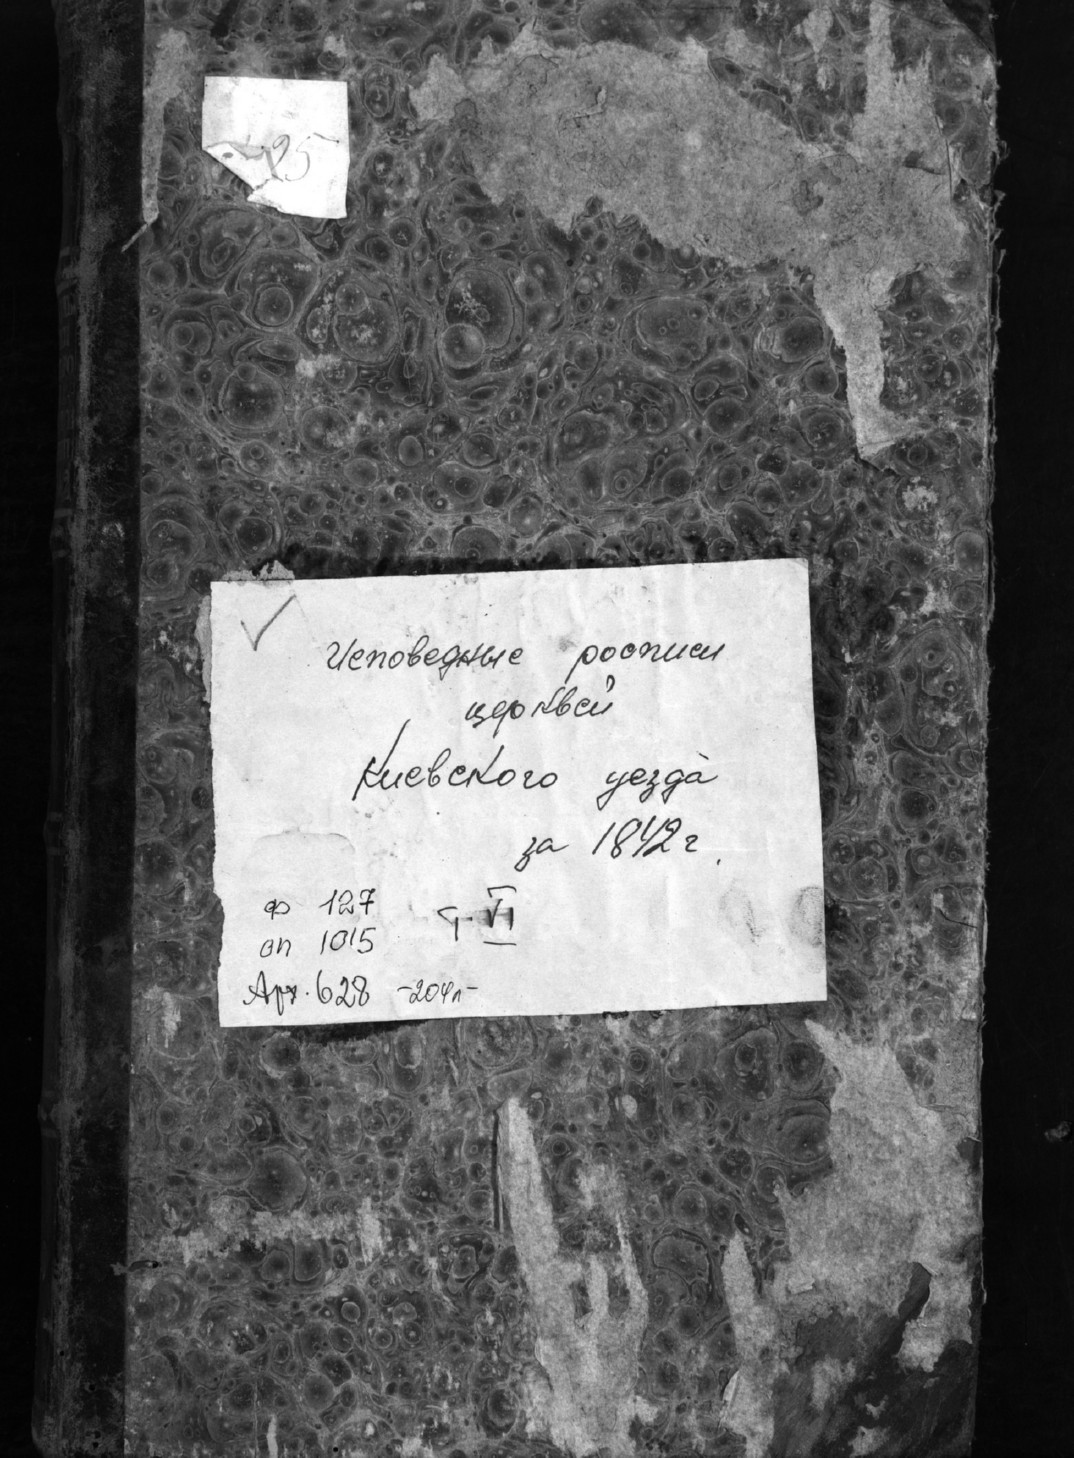 25
Исповедные росписи
церквей
Киевского уезда
за 1842 г.
ф 127
оп 1015
Арх. 628 -204л-
ч. VI